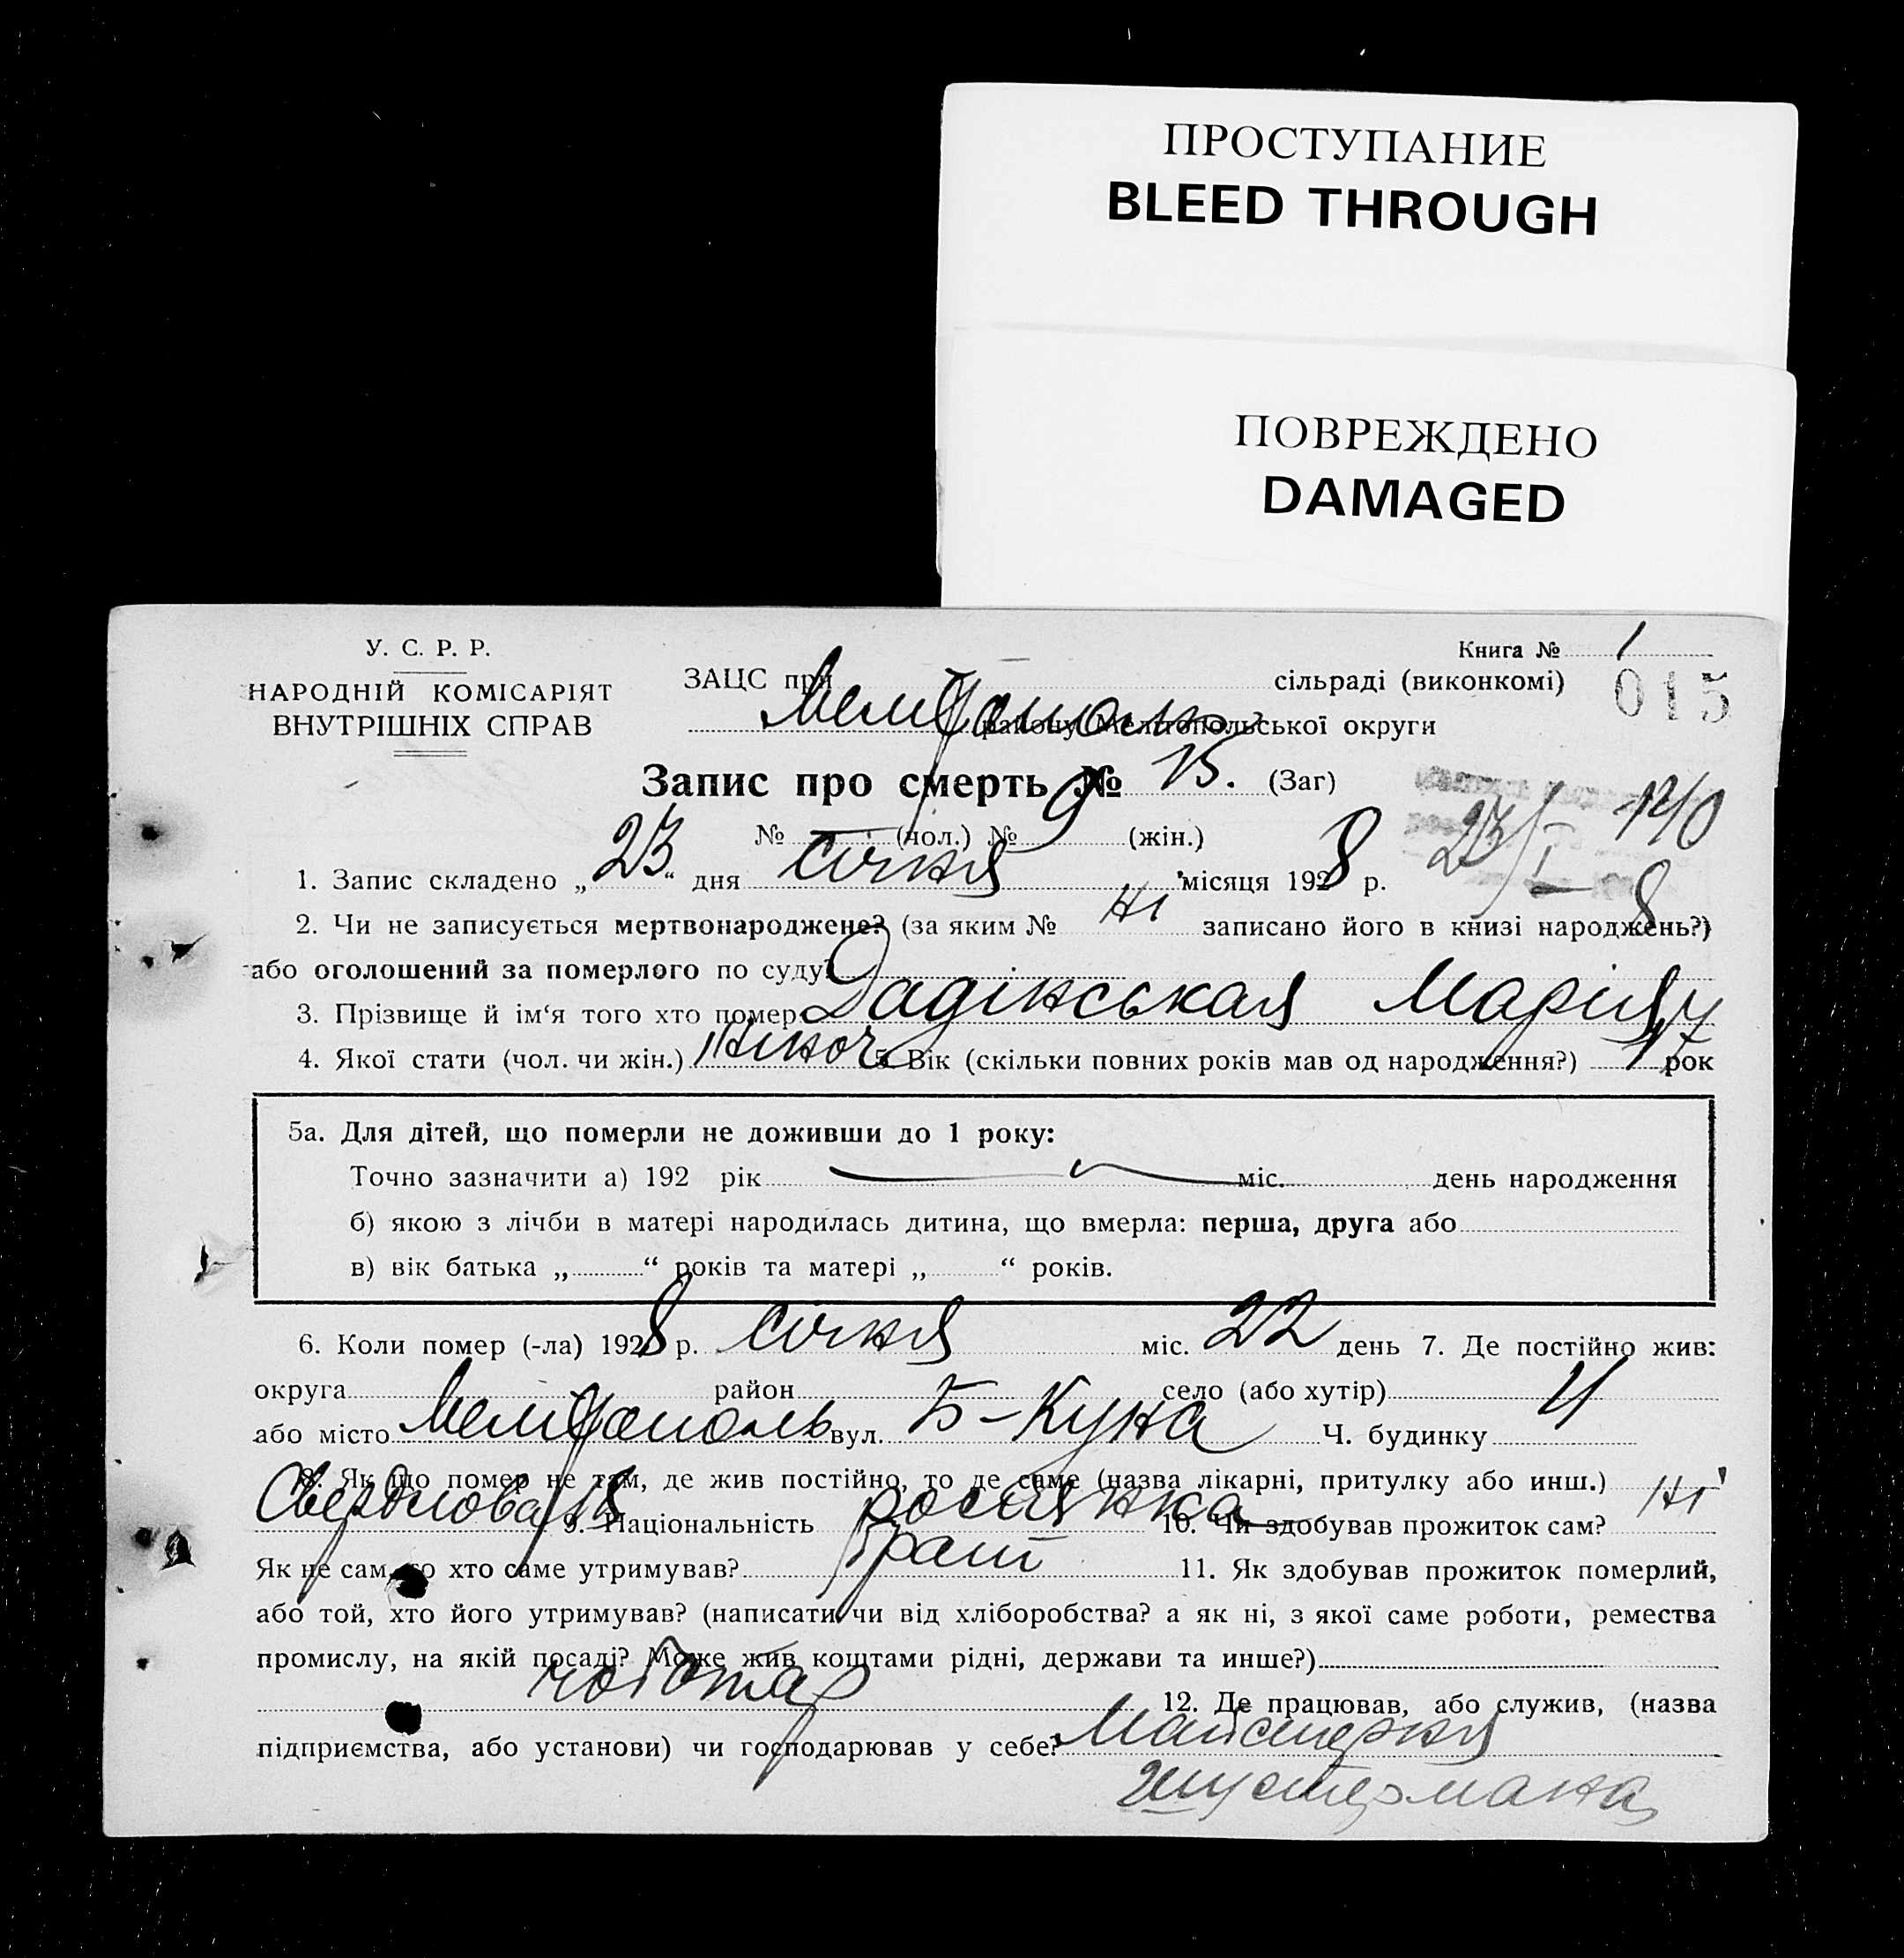 ПРОСТУПАНИЕ
BLEED THROUGH
ПОВРЕЖДЕНО
DAMAGED
У. С. Р. Р.
НАРОДНІЙ КОМІСАРІЯТ
ВНУТРІШНІХ СПРАВ
Книга № 1
015
ЗАЦС при сільраді (виконкомі)
району Мелітопольської округи
Запис про смерть № 15. (Заг)
№ — (чол.) № 9 (жін.)
23/I 8
1. Запис складено „23“ дня січня місяця 1928 р.
2. Чи не записується мертвонароджене? (за яким № ні записано його в книзі народжень?)
або оголошений за померлого по суду?
3. Прізвище й ім‘я того хто помер Дадінська Марія
4. Якої стати (чол. чи жін.) жіноч 5. Вік (скільки повних років мав од народження?) 17 рок
5а. Для дітей, що померли не доживши до 1 року:
Точно зазначити а) 192 рік міс. день народження
б) якою з лічби в матері народилась дитина, що вмерла: перша, друга або
в) вік батька „ “ років та матері „ “ років.
6. Коли помер (-ла) 1928 р. січня міс. 22 день 7. Де постійно жив:
округа район село (або хутір)
або місто Мелітополь вул. Б-Куна Ч. будинку 4
8. Як що помер не там, де жив постійно, то де саме (назва лікарні, притулку або инш.)
Свердлова 9. Національність росіянка 10. Чи здобував прожиток сам? ні
Як не сам, то хто саме утримував? брат 11. Як здобував прожиток померлий,
або той, хто його утримував? (написати чи від хліборобства? а як ні, з якої саме роботи, ремества
промислу, на якій посаді? Може жив коштами рідні, держави та инше?)
чоботар 12. Де працював, або служив, (назва
підприємства, або установи) чи господарював у себе? Майстерня
Шустермана